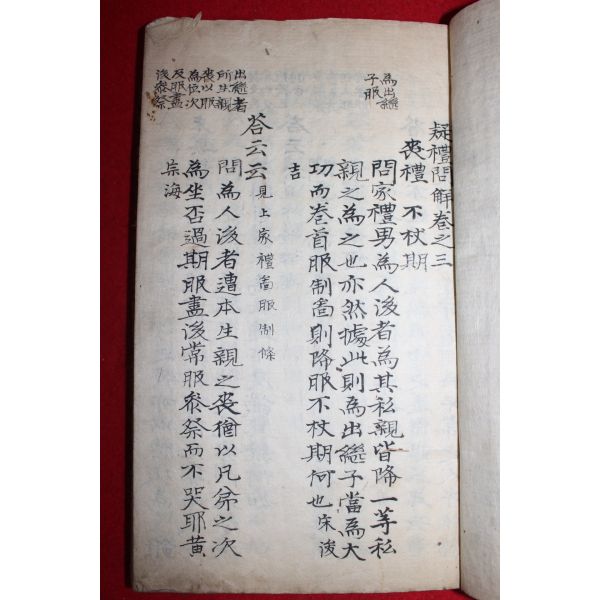 疑禮問解卷之三
喪禮 不杖期
為出繼
子服
問家禮男為人後者為其私親皆降一等私
親之為之也亦然據此則為出繼子當為大
功而卷首服制啚則降服不杖期何也宋浚
吉
答云云見上家禮啚服制條
出繼者
所生親
喪以服
為位次
及服盡
後參祭
問為人後者遭本生親之喪猶以凡弟之次
為坐否過期服盡後常服參祭而不哭耶黃
宗海